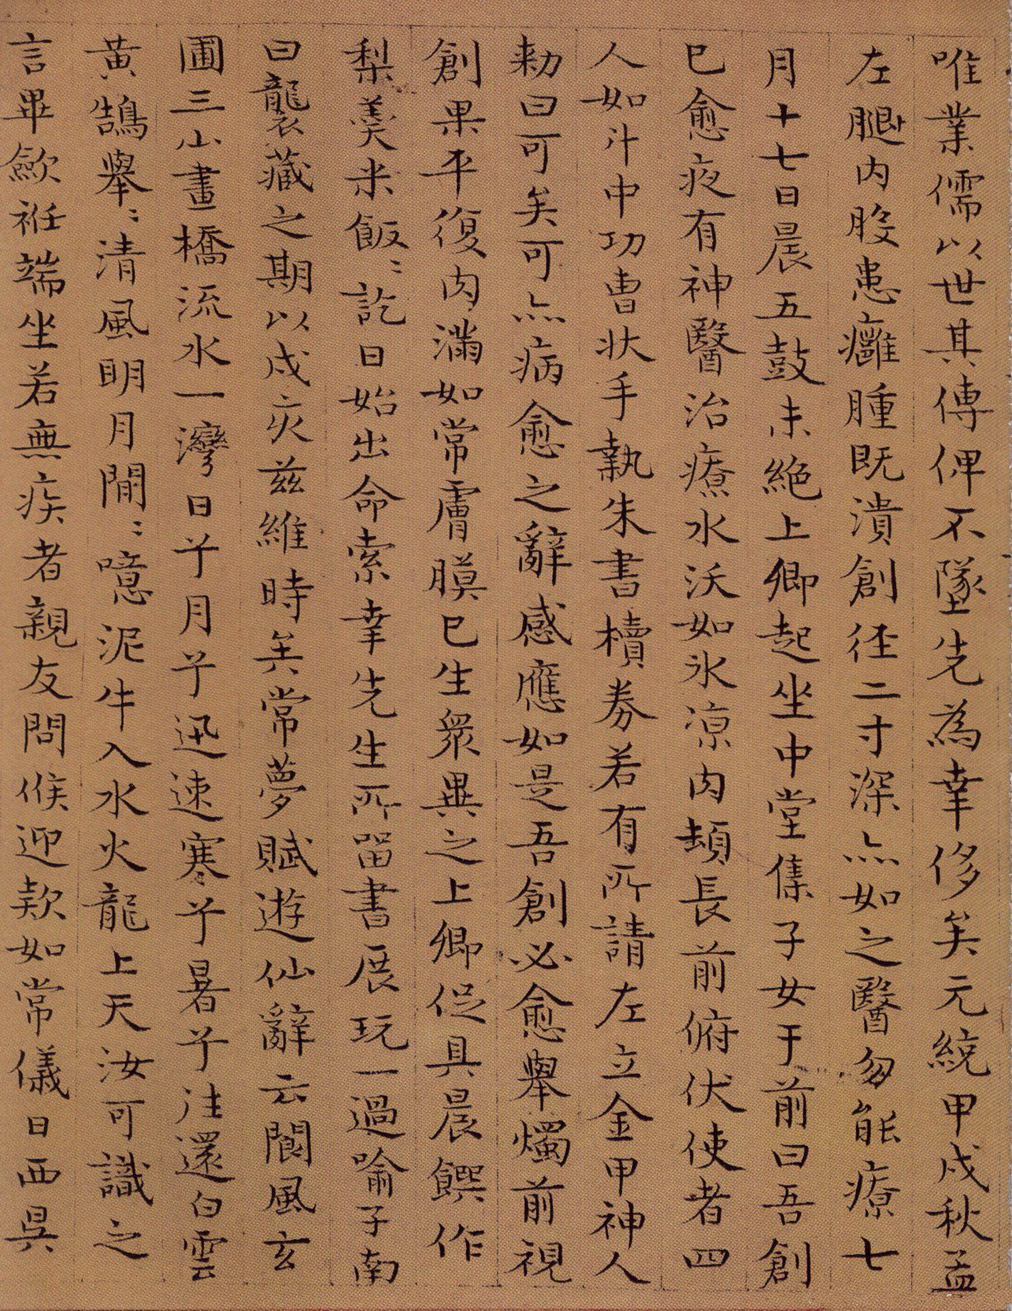 唯業儒以世其傳俾不墜先為幸侈矣元統甲戌秋孟
左腿內股患癰腫既潰創径二寸深亦如之醫匆能療七
月十七日晨五鼓未絕上卿起坐中堂集子女于前曰吾創
已愈夜有神醫治療水沃如氷凉內頓長前俯伏使者四
人如斗中功曹状手執朱書櫝券若有所請左立金甲神人
勑曰可矣可亦病愈之辭感應如是吾創必愈舉燭前視
創果平復肉滿如常膚膜已生衆異之上卿促具晨饌作
梨羮米飯〻訖日始出命索幸先生所留書展玩一過喻子南
曰襲藏之期以戌亥兹維時矣常夢賦遊仙辭云閬風玄
圃三山畫橋流水一灣日兮月兮迅速寒兮暑兮往還白雲
黄鵠舉〻清風明月閒〻噫泥牛入水火龍上天汝可識之
言畢歛袵端坐若無疾者親友問候迎款如常儀日西吳